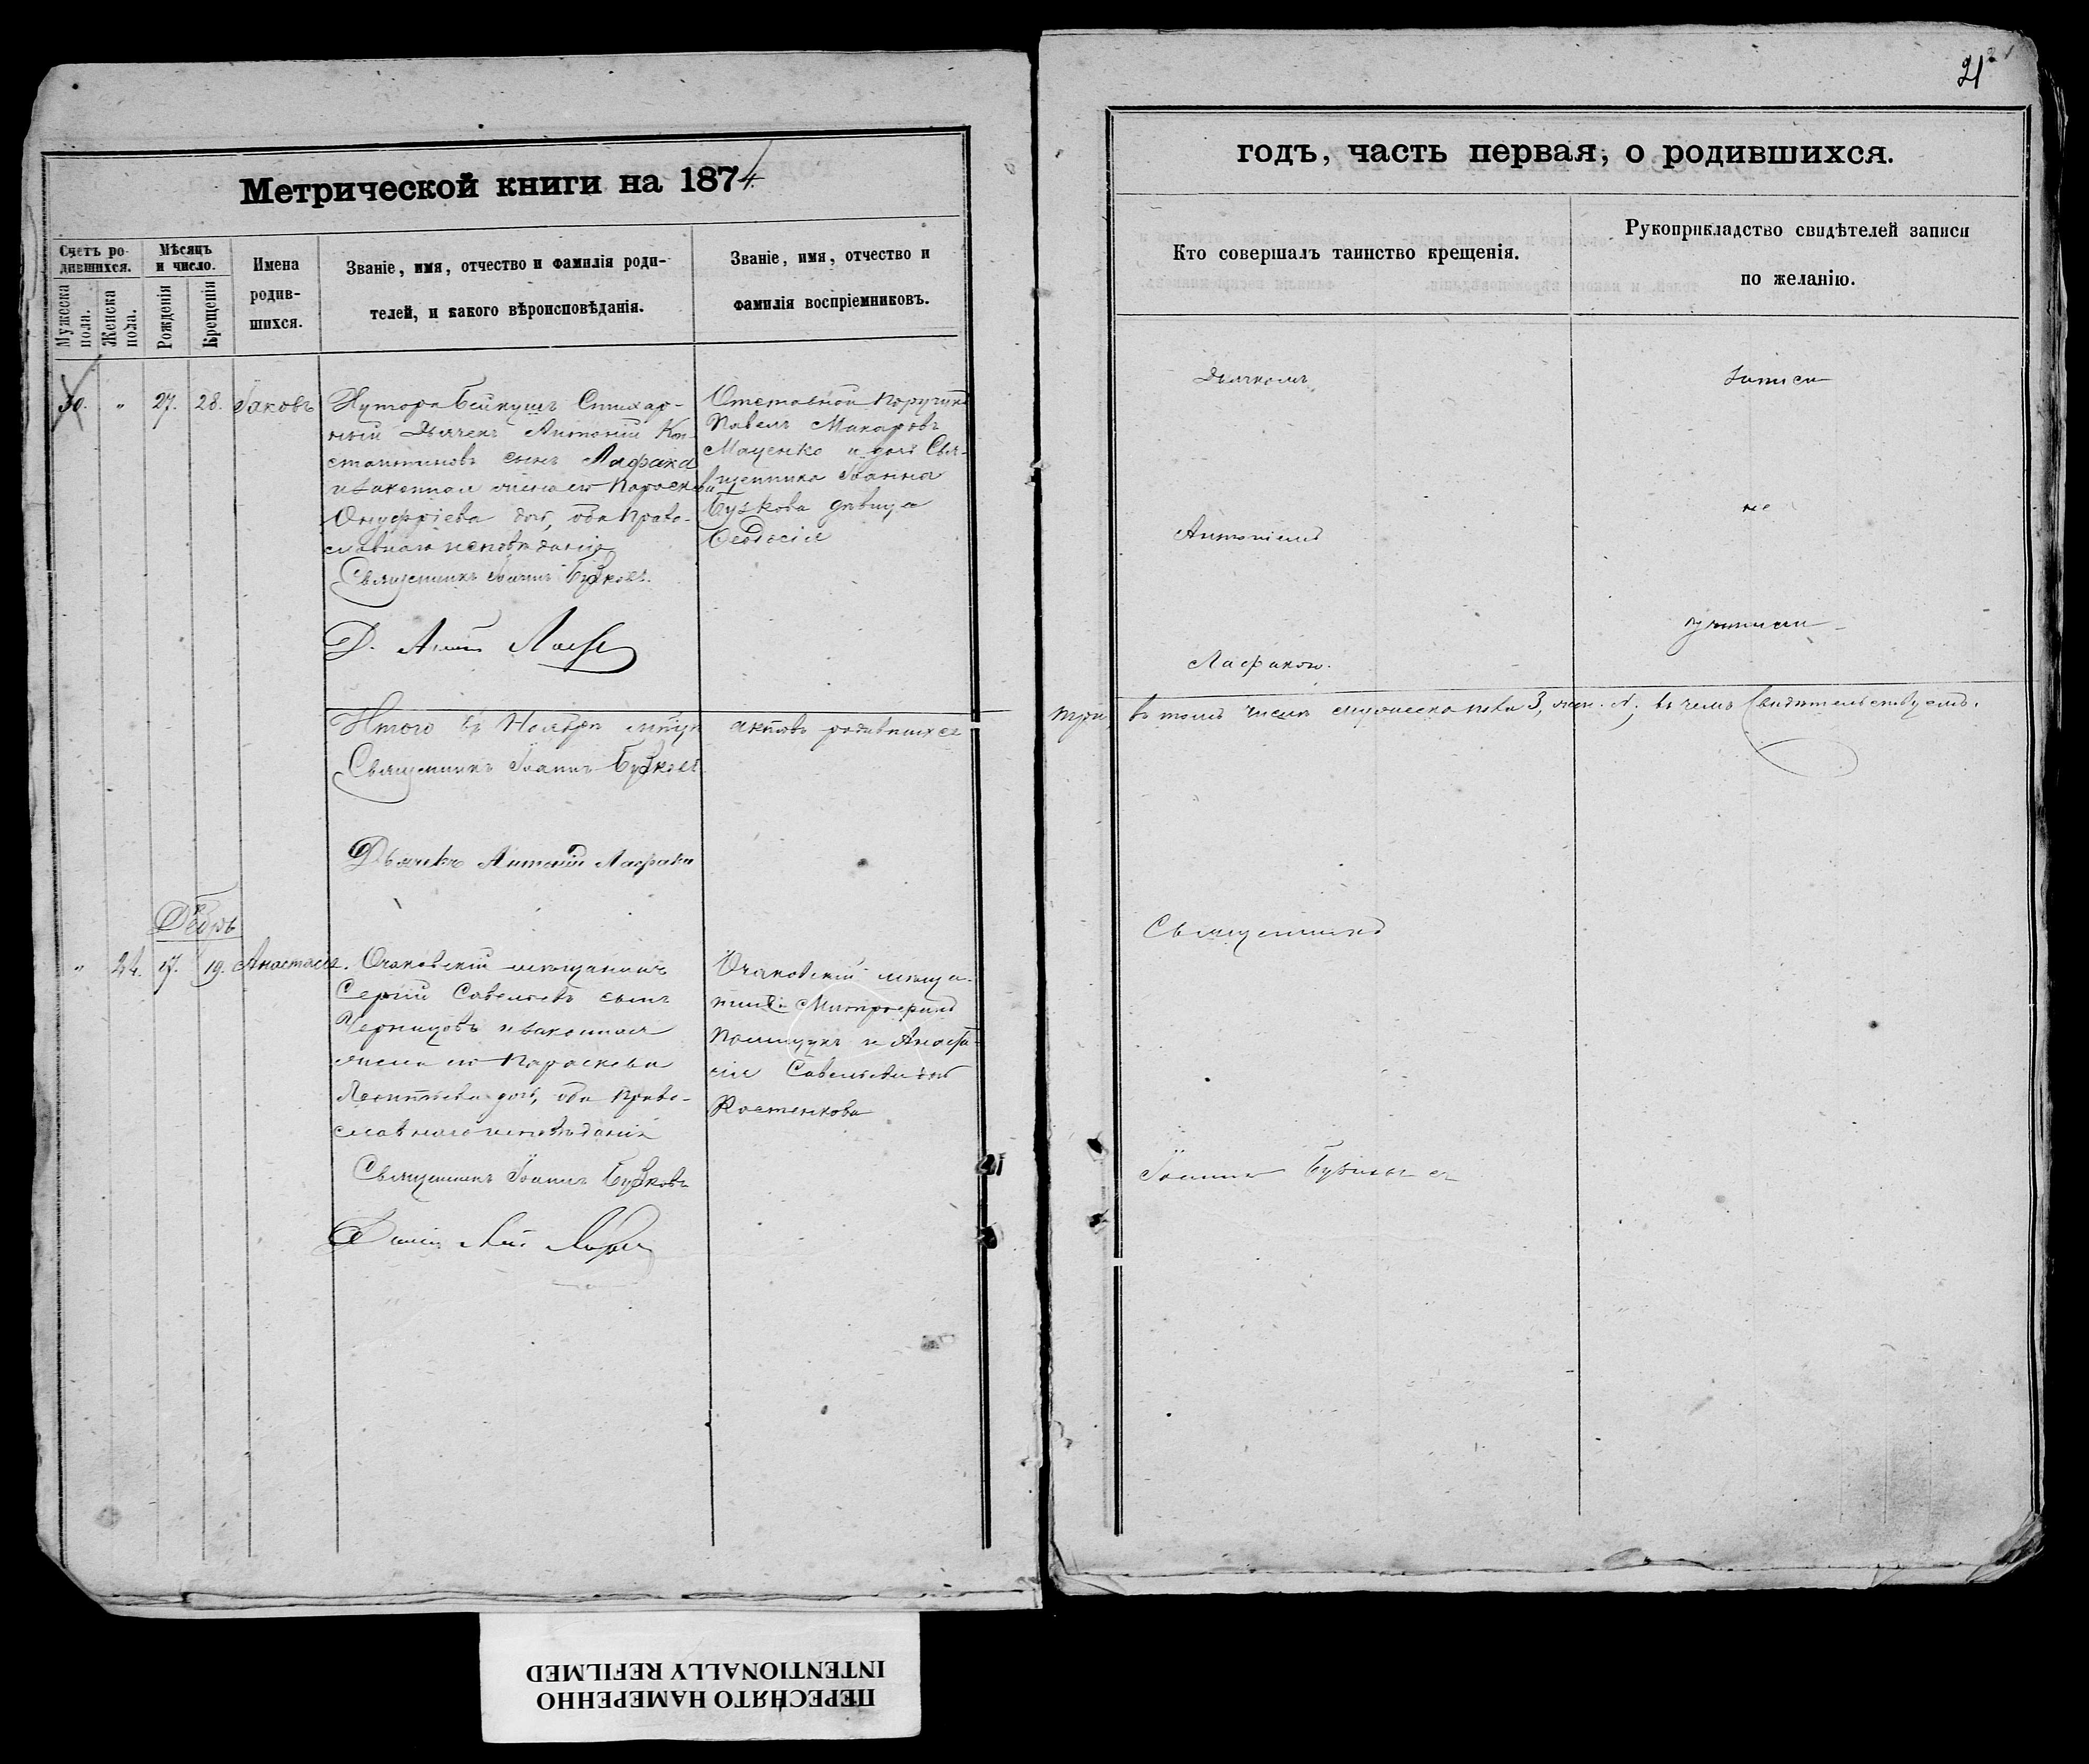 21
Метрической книги на 1874
годъ, часть первая, о родившихся.
Счетъ ро-
дившихся.
Мужеска
пола.
Женска
пола.
Мѣсяцъ
и число.
Рожденія
Крещенія
Имена
родив-
шихся.
Званіе, имя, отчество и фамилія роди-
телей, и какого вѣроисповѣданія.
Званіе, имя, отчество и
фамилія воспріемниковъ.
Кто совершалъ таинство крещенія.
Рукоприкладство свидѣтелей записи
по желанію.
30. " 27. 28. Іаковъ
Хутора Бейкушъ Стихар-
ный Дьячекъ Антоній Кон-
стантиновъ сынъ Лафака
и законная жена его Параскева
Онуфріева дочь, оба Право-
славнаго исповѣданія
Священникъ Іоаннъ Бузковъ.
Д.
Отставной Поручикъ
Павелъ Макаровъ
Маценко и дочь Свя-
щенника Іоанна
Бузкова дѣвица
Ѳеодосія
Дьячкомъ
Антоніемъ
Лафакою.
Записи
не
учинили
Итого въ Ноябрѣ мѣсяцѣ актовъ родившихся
три, въ томъ числѣ мужеска пола 3, жен. –, въ чемъ Свидѣтельствуемъ.
Священникъ Іоаннъ Бузковъ
Дьячекъ Антоній Лафака
Декбрь
" 24. 17. 19. Анастасія.
Очаковскій мѣщанинъ
Сергій Савельевъ сынъ
Черницовъ и законная
жена его Параскева
Леонтьева дочь, оба Право-
славнаго исповѣданія
Священникъ Іоаннъ Бузковъ
Очаковскій мѣща-
нинъ Митрофанъ
Полищукъ и Анаста-
сія Савельева дочь
Костенкова
Священникъ
Іоаннъ
21
ПЕРЕСНЯТО НАМЕРЕННО
INTENTIONALLY REFILMED